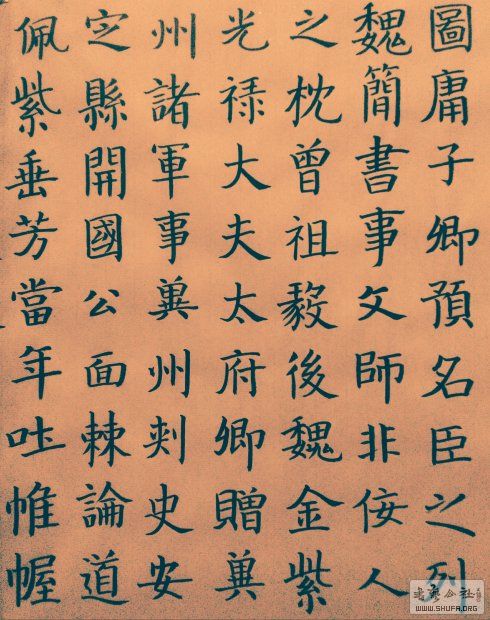 圖庸子卿預名臣之列
魏簡書事文師非侫人
之枕曾祖毅後魏金紫
光禄大夫太府卿贈兾
州諸軍事兾州刾史安
㝎縣開國公面棘論道
佩紫垂芳當年吐帷幄
WWW.SHUFA.ORG